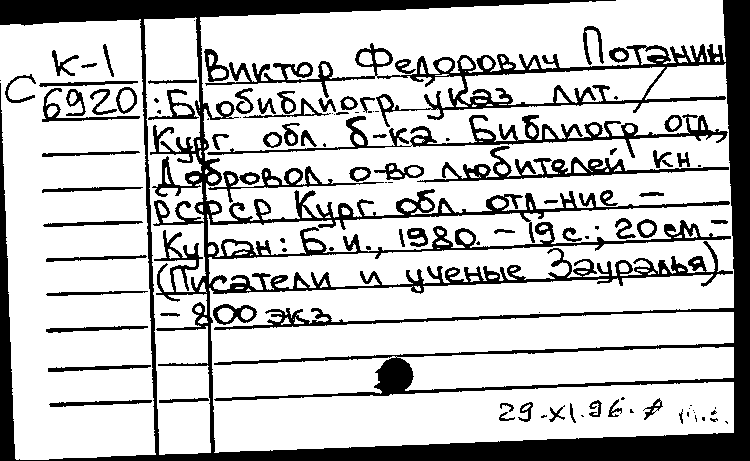 К-1
С 6920
Виктор Федорович Потанин
: Биобиблиогр. указ. лит. /
Кург. обл. б-ка. Библиогр. отд.,
Добровол. о-во любителей кн.
РСФСР. Кург. обл. отд-ние. –
Курган: Б.и., 1980. – 19 с.; 20 см. –
(Писатели и ученые Зауралья).
– 800 экз.
29.XI.96.